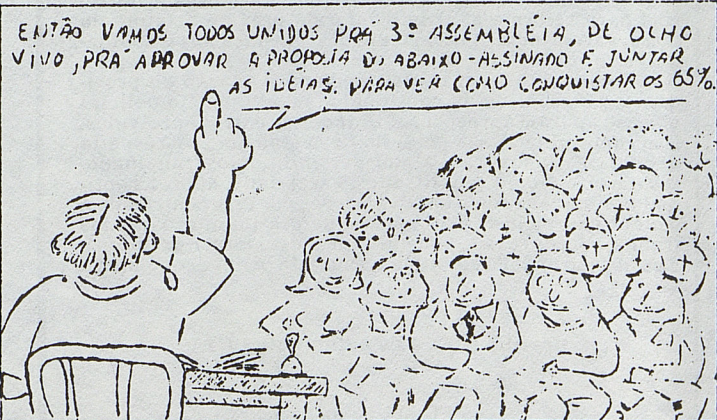 ENTÃO VAMOS TODOS UNIDOS PRÁ 3ª ASSEMBLÉIA, DE OLHO
VIVO, PRÁ APROVAR A PROPOSTA DO ABAIXO-ASSINADO E JUNTAR
AS IDÉIAS PARA VER COMO CONQUISTAR OS 65%.